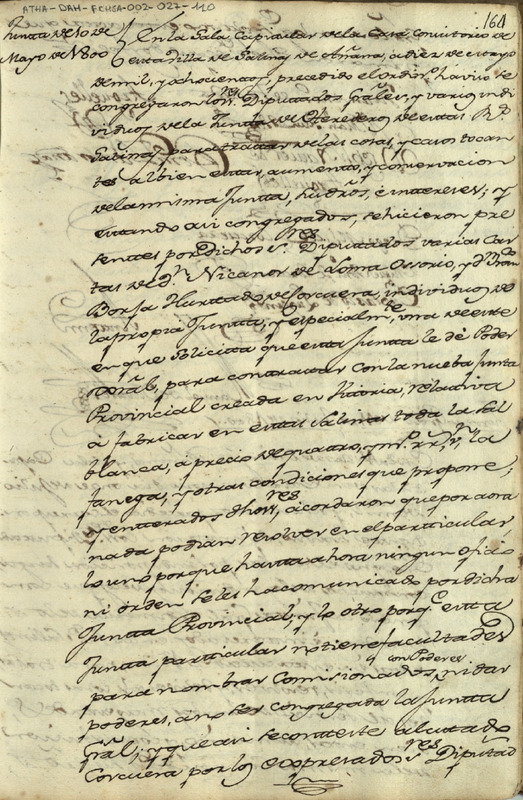 ATHA-DAH-FCHSA-002-027-110
164
Juntta de 10 de
Mayo de 1800
En la Sala Capitular de la Casa Consistorio de
estta Villa de Salinas de Añana, a diez de mayo
de mil, y ochocientos, precedido el ordin.º haviso se
congregaron los S.res Diputados Grâles, y varios indi
viduos de la Juntta de Herederos de esttas R.s
Salinas, para trattar de las cosas, y casos tocan
tes al bien estar, aumento, y conservacion
de la misma Juntta, sus dros, e intereses; y
estando asi congregados, se hicieron pre
sentes por dichos S.res Diputados varias Car
tas de d.n Nicanor de Loma Ossorio, y d.n Fran.co
Borja Hurttado de Corcuera, individuos de
la propia Juntta, y especialm.te una de este
en que solicitta que estta Juntta le dé Poder
para conttratar con la nueba Juntta
Provincial creada en Vitoria, relativa
á fabricar en esttas Salinas toda la Sal
blanca, a precio de quatro, y m.º rr.s v.n la
fanega, y otras condiciones que propone;
y entterados dhos S.res, acordaron que por aora
nada podian resolver en el partticular
lo uno porque hastta ahora ningun ofic̃io
ni órden se les ha comunicado por dicha
Juntta Provincial, y lo otro porq.e estta
Juntta particular no tiene facultades
con Poderes
para nombrar Comisionados, ni dar
poderes, a no ser congregada la Juntta
Grâl; y que asi se conteste al citado
Corcuera por los expresados S.res Diputad